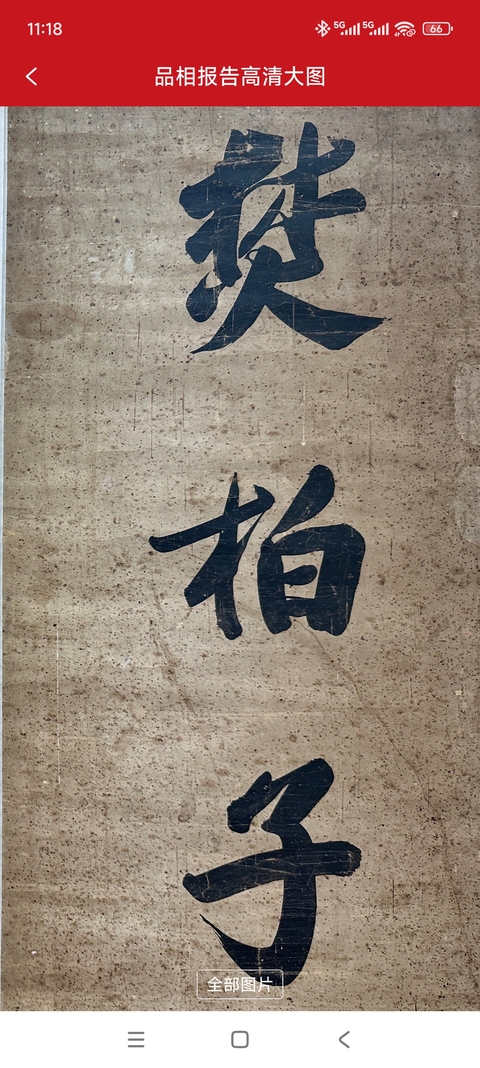 11:18
5G 5G 66
品相报告高清大图
焚
柏
子
全部图片